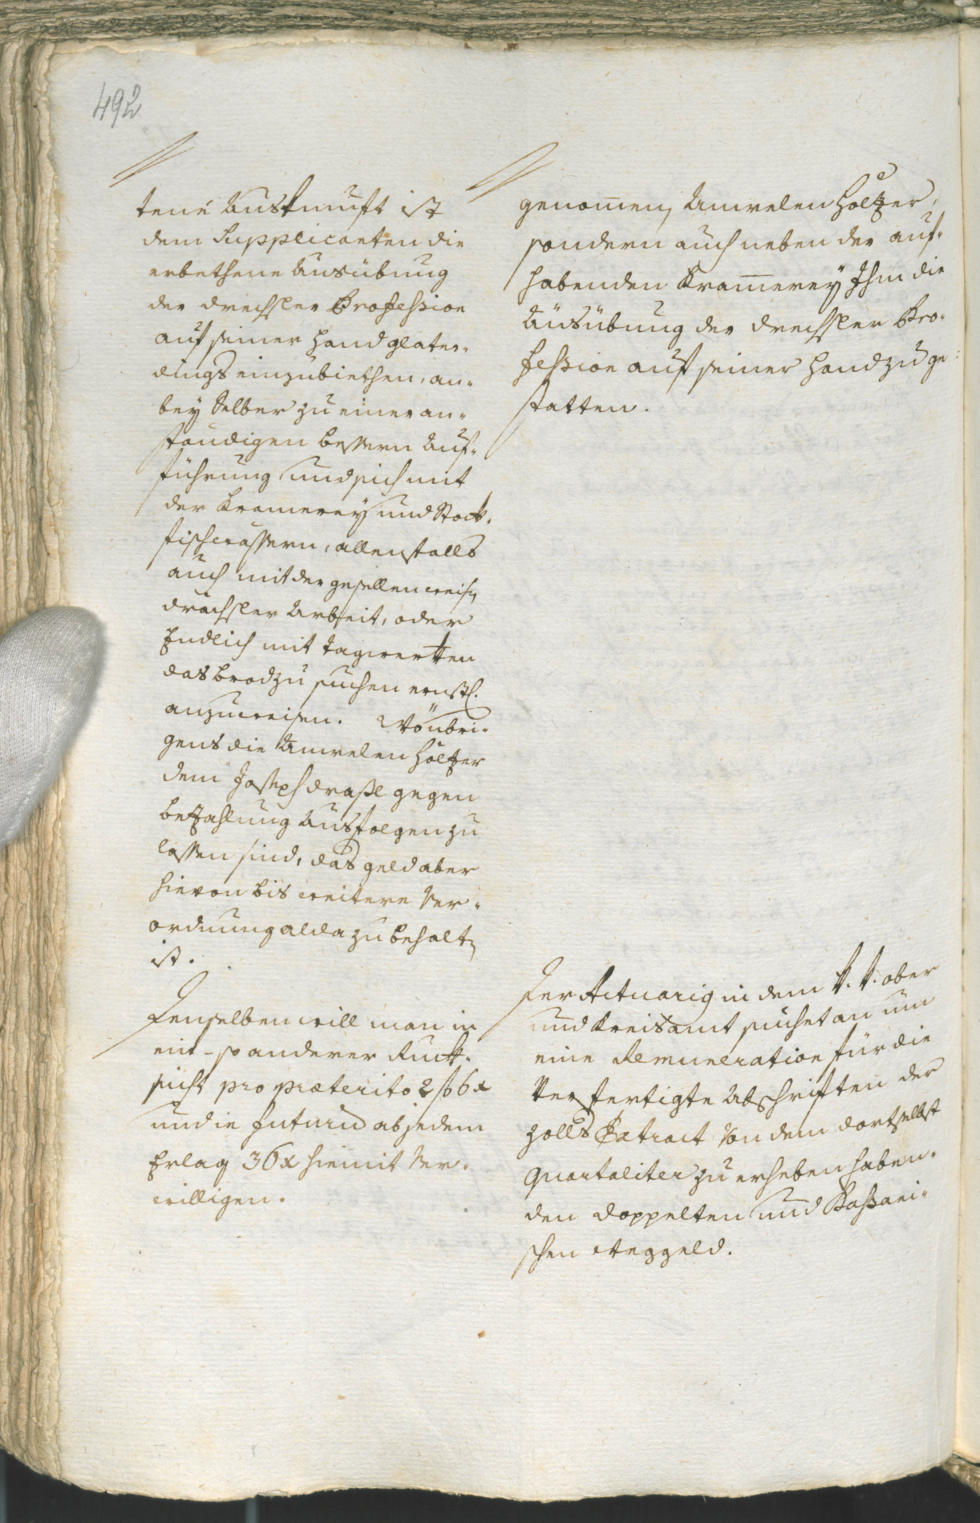 492
tene Auskunft ist
dem Supplicanten die
erbethene Ausübung
der drechsler Profession
auf seiner Hand glater-
dings einzubiethen, an-
bey selber zu einer an-
ständigen bessern Auf-
führung, und sich mit
der Kramerey und Stock-
fischwassern, allenfalls
auch mit der gesellenweise
drächsler Arbeit, oder
Endlich mit Tagwerken
das brod zu suchen ernstl.
anzuweisen. Wo übri-
gens die Amrelen hölzer
dem Joseph draßl gegen
bezahlung Ausfolgen zu
lassen sind, das geld aber
hievon bis weitere Ver-
ordnung alda zu behalten
ist.
Demselben will man in
ein- so anderer Ruck-
sicht pro præterito 2 f 6 x
und in futurum ab jedem
Erlag 36 x hiemit Ver-
willigen.
genommen, Amrelen Höltzer,
sondern auch neben der auf-
habenden Kramerey Ihm die
Ausübung der drechsler Pro-
fession auf seiner Hand zu ge-
statten.
Der Actuarig in dem k. k. ober
und Kreisamt suchet an um
eine Remuneration für die
Verfertigte Abschriften der
Zolls Extract Von dem dortselbst
Quartaliter zu erheben haben-
den doppelten und Passaui-
schen Weggeld.